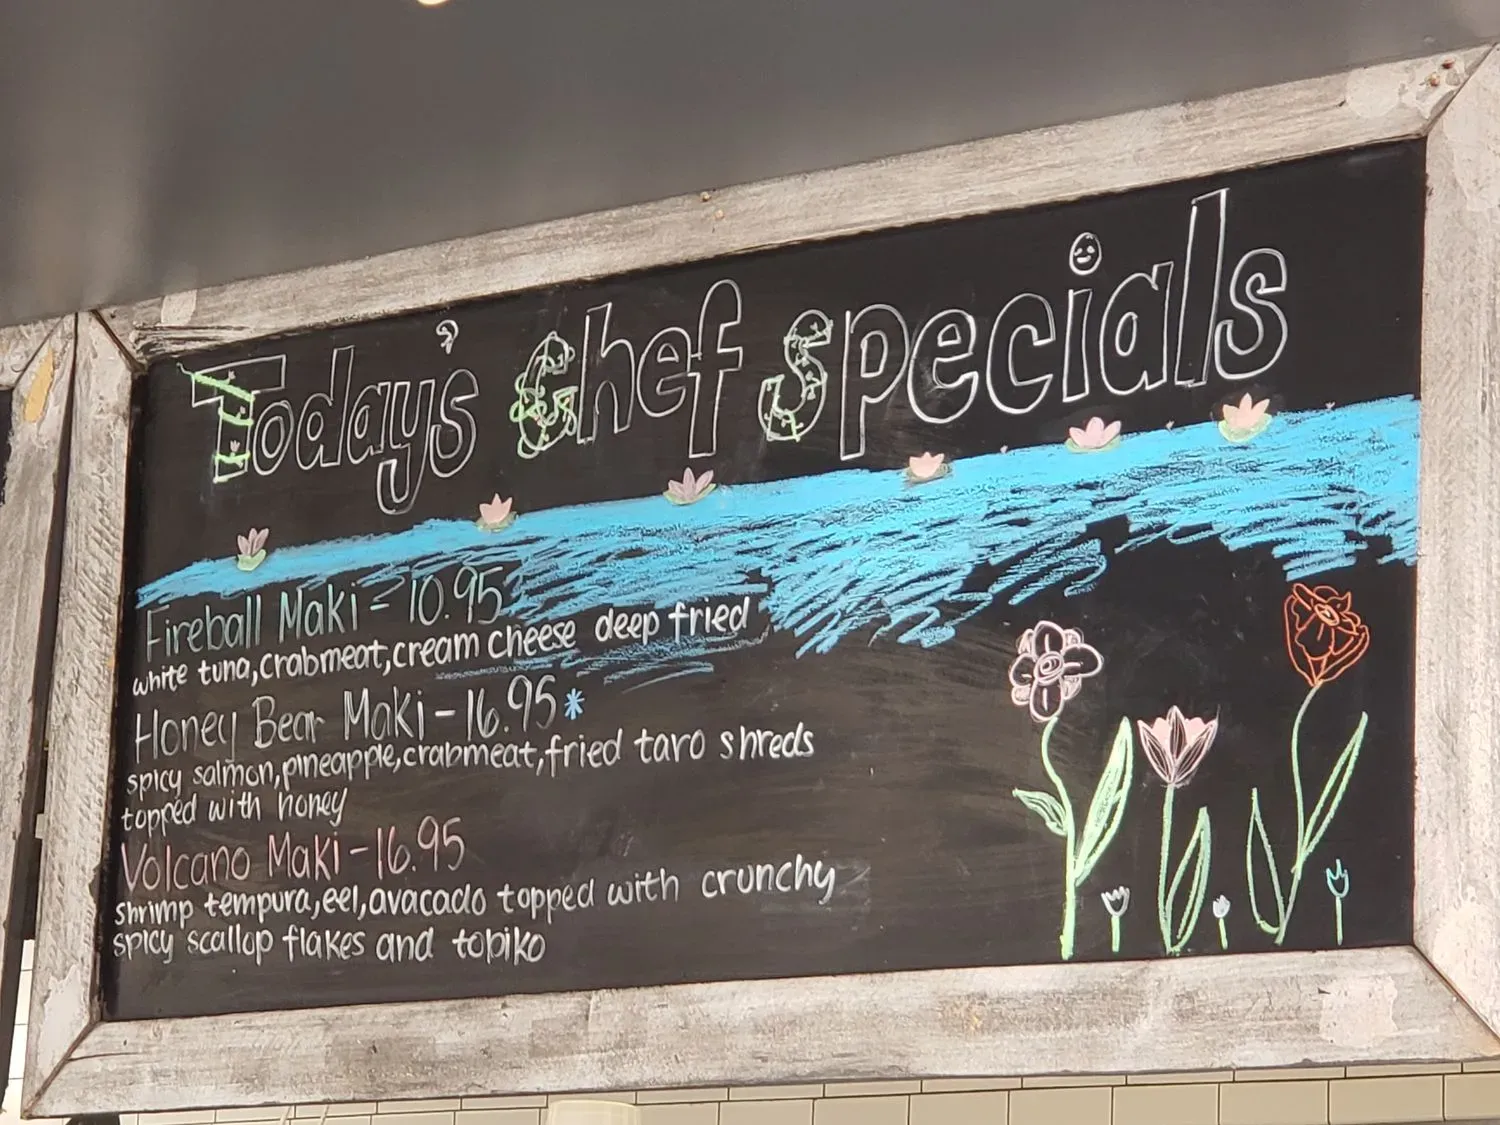 Today's Chef Specials
Fireball Maki - 10.95
white tuna, crabmeat, cream cheese deep fried
Honey Bear Maki - 16.95*
spicy salmon, pineapple, crabmeat, fried taro shreds
topped with honey
Volcano Maki - 16.95
shrimp tempura, eel, avacado topped with crunchy
spicy scallop flakes and tobiko